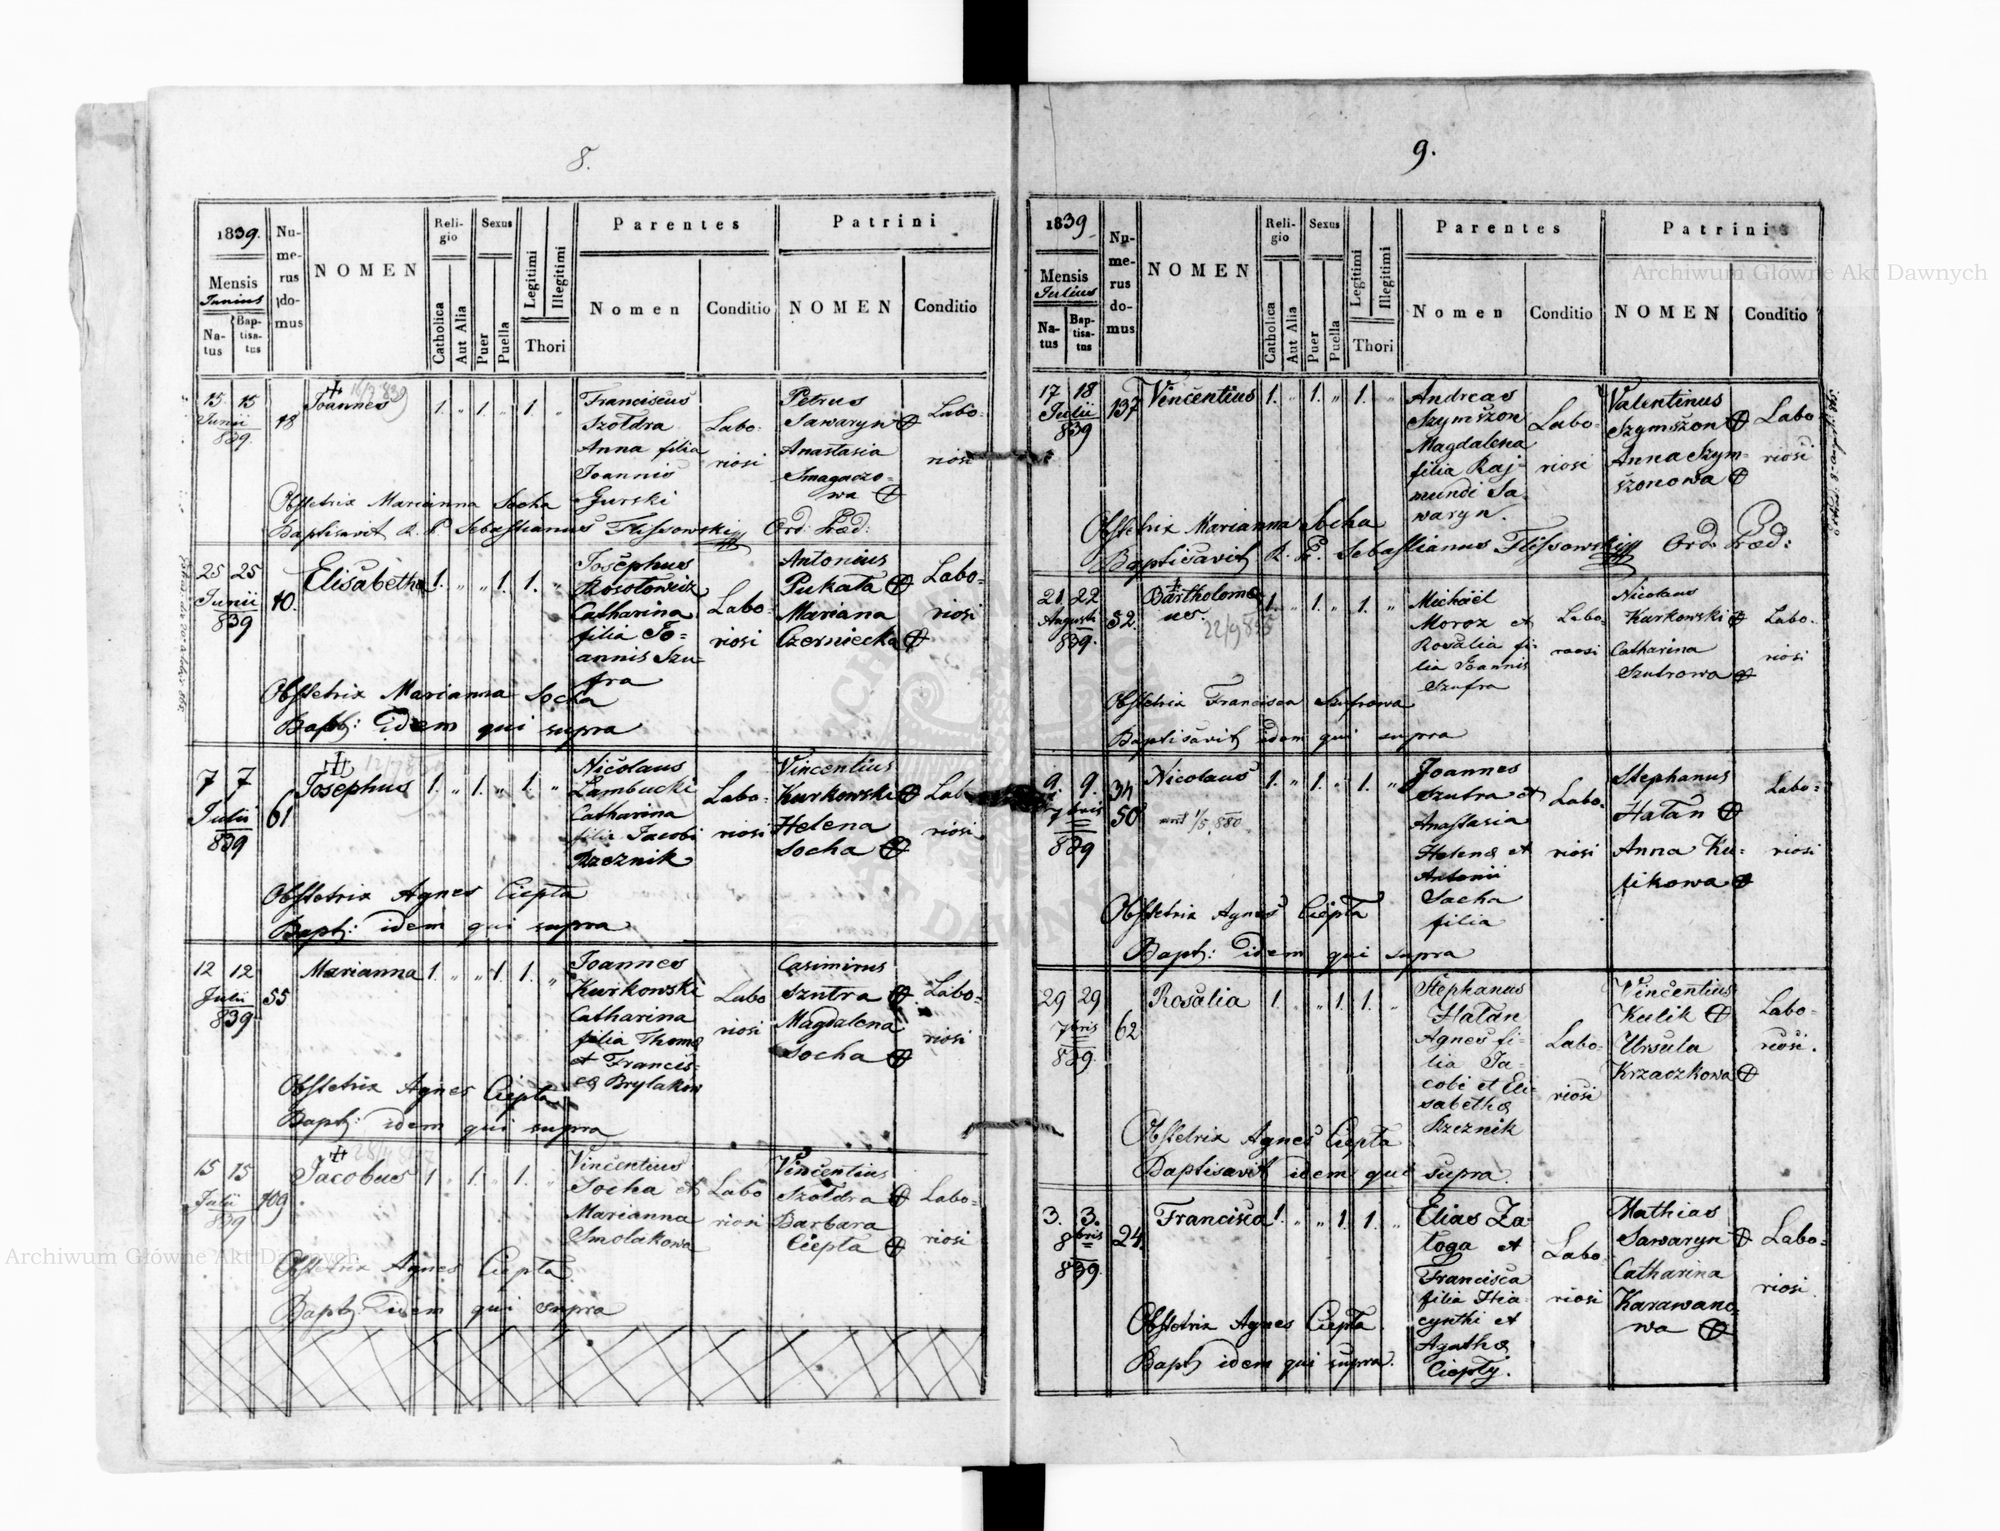 8.
1839.
Mensis
Junius
Natus
Baptisatus
Numerus domus
NOMEN
Religio
Catholica
Aut Alia
Sexus
Puer
Puella
Legitimi
Illegitimi
Thori
Parentes
Nomen
Conditio
Patrini
NOMEN
Conditio
15 15
Junii
839.
18
Joannes
1. „ 1. „ 1. „
Franciscus
Szoldra
Anna filia
Joannis
Gurski
Labo-
riosi
Petrus
Sawaryn
Anastasia
Smagaczo-
wa
Labo-
riosi
Obstetrix Marianna Socha
Baptisavit R. P. Sebastianus Flissowski Ord: Præd:
25 25
Junii
839
10.
Elisabetha
1. „ „ 1. 1. „
Josephus
Catharina
filia Jo-
annis Szu-
fra
Labo-
riosi
Antonius
Pukata
Mariana
Czerniecka
Labo-
riosi
Obstetrix Marianna Socha
Bapt: idem qui supra
7 7
Julii
839
61
Josephus
1. „ 1. „ 1. „
Nicolaus
Lambucki
Catharina
filia Jacobi
Rzeznik
Labo-
riosi
Vincentius
Kurkowski
Helena
Socha
Labo-
riosi
Obstetrix Agnes Ciepta
Bapt: idem qui supra
12 12
Julii
839
55
Marianna
1. „ „ 1. 1. „
Joannes
Kurkowski
Catharina
filia Thomæ
et Francis-
cæ Brylakow
Labo
riosi
Casimirus
Szutra
Magdalena
Socha
Labo-
riosi
Obstetrix Agnes Ciepta
Bapt: idem qui supra
15 15
Julii
839
109
Jacobus
1 „ 1. „ 1. „
Vincentius
Socha et
Marianna
Smolakowa
Labo
riosi
Vincentius
Szoldra
Barbara
Ciepta
Labo-
riosi
Obstetrix Agnes Ciepta
Bapt: idem qui supra
9.
1839
Mensis
Julius
Natus
Baptisatus
Numerus domus
NOMEN
Religio
Catholica
Aut Alia
Sexus
Puer
Puella
Legitimi
Illegitimi
Thori
Parentes
Nomen
Conditio
Patrini
NOMEN
Conditio
17 18
Julii
839
137
Vincentius
1. „ 1. „ 1. „
Andreas
Szymszon
Magdalena
filia Raj-
mundi Sa-
waryn.
Labo-
riosi
Valentinus
Szymszon
Anna Szym-
szonowa
Labo
riosi
Obstetrix Marianna Socha
Baptisavit R. P. Sebastianus Flissowski Ord. Præd:
21. 22
Augusti
839.
52.
Bartholome-
us.
1. „ 1. „ 1. „
Michaël
Moroz et
Rosalia fi-
lia Joannis
Szufra
Labo
riosi
Nicolaus
Kurkowski
Catharina
Szutrowa
Labo-
riosi
Obstetrix Francisca Szufrowa
Baptisavit idem qui supra
9. 9.
7bris
839
34
50
Nicolaus
mort 1/5 880
1. „ 1. „ 1. „
Joannes
Szutra et
Anastasia
Helenæ et
Antonii
Socha
filia
Labo-
riosi
Stephanus
Hatan
Anna Ku-
likowa
Labo-
riosi
Obstetrix Agnes Ciepta
Bapt: idem qui supra
29 29
7bris
839.
62
Rosalia
1. „ „ 1. 1. „
Stephanus
Hatan
Agnes fi-
lia Ja-
cobi et Eli-
sabethæ
Rzeznik
Labo-
riosi
Vincentius
Kulik
Ursula
Krzaczkowa
Labo-
riosi.
Obstetrix Agnes Ciepta
Baptisavit idem qui supra.
3. 3.
8bris
839.
24.
Francisca
1. „ „ 1. 1. „
Elias Za-
toga et
Francisca
filia Hia-
cynthi et
Agathæ
Ciepty.
Labo-
riosi
Mathias
Sawaryn
Catharina
Karawano-
wa
Labo-
riosi.
Obstetrix Agnes Ciepta
Bapt idem qui supra.
Archiwum Główne Akt Dawnych
Archiwum Główne Akt Dawnych